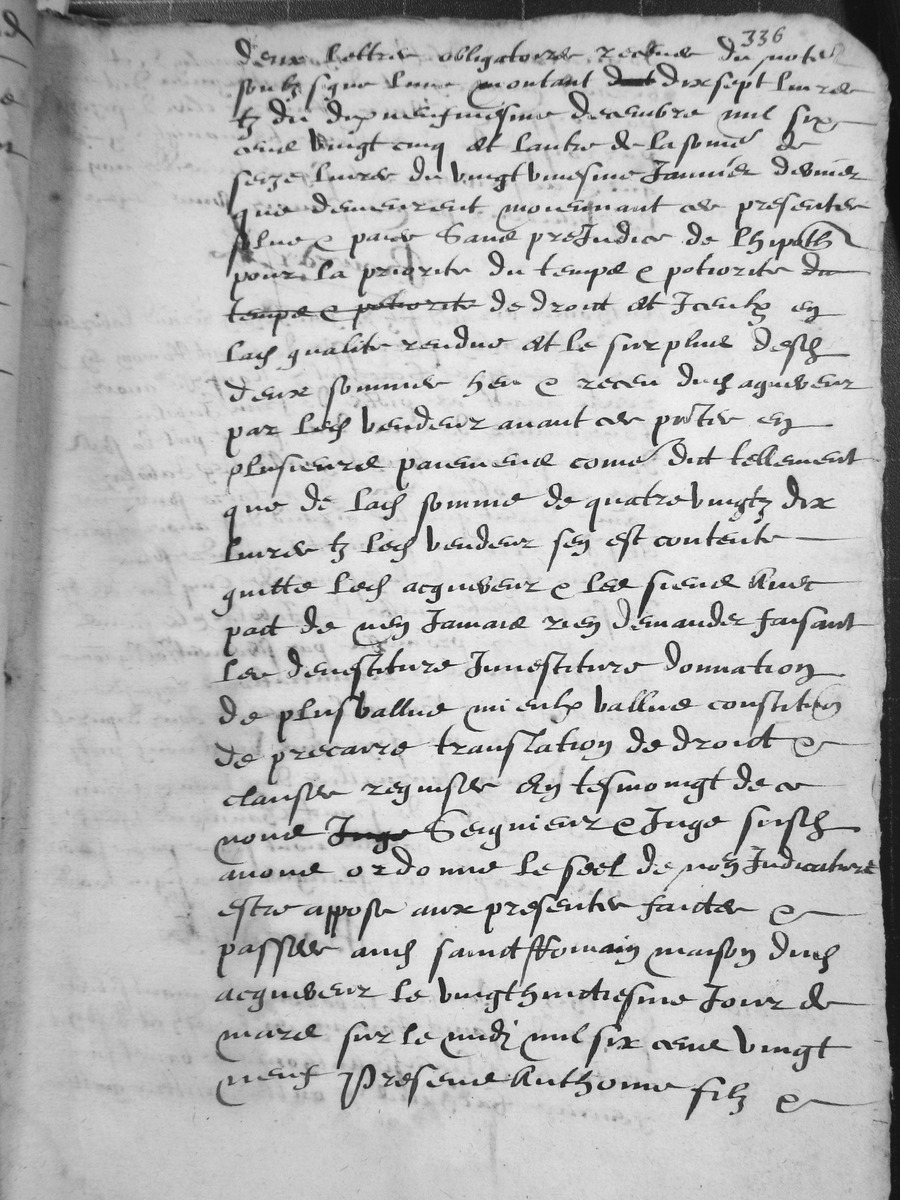 336
deux lettres obligatoires receues du notre
soubz signe lune montant dix sept livres
tz du dixneufviesme decembre mil six
cens vingt cinq et lautre de la some de
seize livres du vingtuniesme Janvier dernier
que demeurent moiennant ces presentes
solue & paiee sans preJudice de lhipoth
pour la priorite du temps & potiorite du
temps & potiorite de droict et Iceulx en
lad qualite rendus et le surplus desd
deux sommes heu & receu dud aquiveur
par led vendeur avant ces pntes en
plusieurs paiemens come dict tellement
que de lad somme de quatre vingtz dix
livres tz led vendeur sen est contente
quitte led acquiveur & les siens Avec
pact de nen Jamais rien demander faisant
les devestiture Investiture donnation
de plus vallue mieulx vallue constitution
de precaire translation de droict &
clauses requises En tesmoingt de ce
nous Juge Seignieur & Juge susd
avons ordonne le seel de nore Judicature
estre appose aux presentes faictes &
passees aud sainct Romain maison dud
acquiveur le vingthuictiesme Jour de
mars sur le midj mil six cens vingt
neuf Presens Anthoine filz &